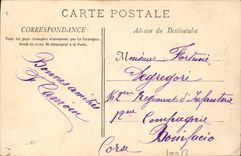 CARTE POSTALE
CORRESPONDANCE
Adresse du Destinataire
Tous les pays étrangers n'acceptent pas la correspon-
dance au recto. Se renseigner à la Poste.
Bonnes amitiés
Monsieur Fortuné
Segregori
162e Régiment d'Infanterie
12me Compagnie
Bonifacio
Corse